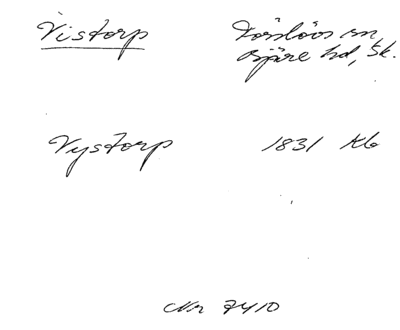 Vistorp Förslövs sn,
Bjäre hd, Sk.
Vystorp 1831 Kb
Nr 7410